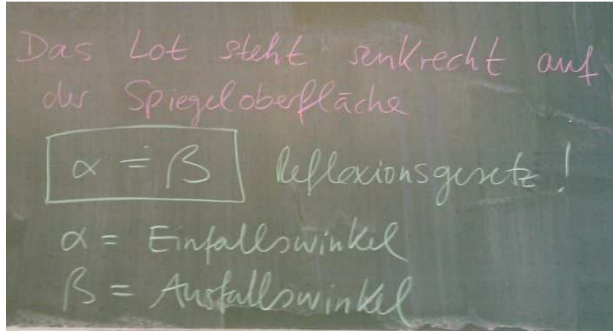 Das Lot steht senkrecht auf
der Spiegeloberfläche
α = β Reflexionsgesetz!
α = Einfallswinkel
β = Ausfallswinkel